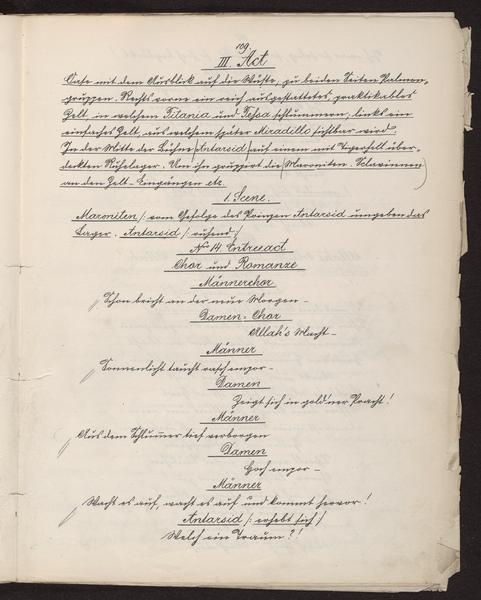 109.
III. Act
Oase mit dem Ausblick auf die Wüste, zu beiden Seiten Palmen-
gruppen. Rechts vorne ein reich ausgestattetes, praktikables
Zelt, in welchem Titania und Tessa schlummern, links ein
einfaches Zelt, aus welchem später Miradillo sichtbar wird.
In der Mitte der Bühne (Antarsid) auf einem mit Tigerfell über-
deckten Ruhelager. Um ihn gruppirt die Maroniten. Sclavinnen
an den Zelt-Eingängen etc.
1. Scene.
Maroniten /: vom Gefolge des Prinzen Antarsid umgeben das
Lager. Antarsid /: ruhend :/
No 14. Entreeact
Chor und Romanze
Männerchor
Schon bricht an der neue Morgen –
Damen-Chor
Allah's Macht –
Männer
Sonnenlicht taucht rasch empor –
Damen
Zeigt sich in gold'ner Pracht!
Männer
Aus dem Schlummer tief verborgen
Damen
Hoch empor –
Männer
Wacht es auf, wacht es auf und kommt hervor!
Antarsid /: erhebt sich :/
Welch ein Traum?!